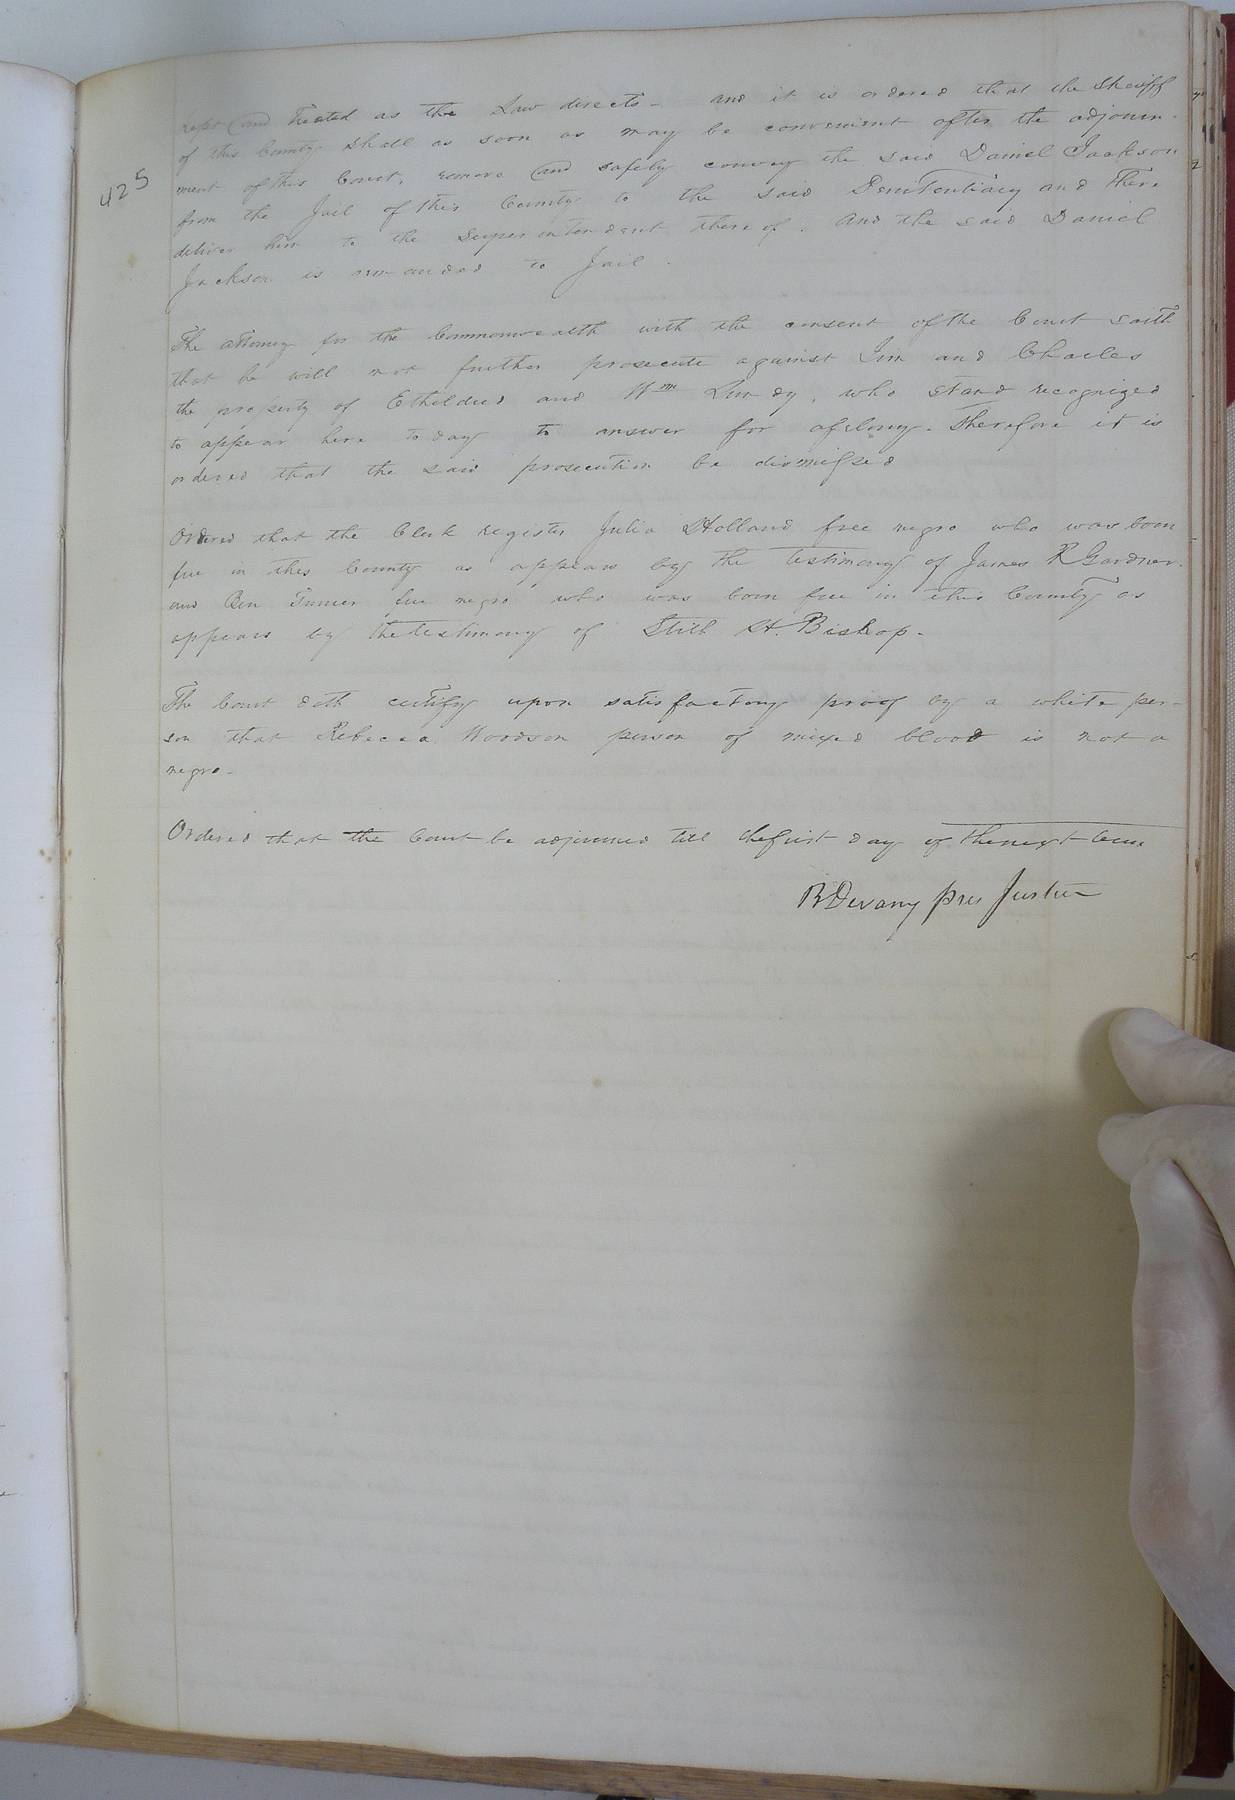 425
kept and treated as the Law directs - and it is ordered that the Sheriff
of this County shall as soon as may be convenient after the adjourn-
ment of this Court, remove and safely convey the said Daniel Jackson
from the Jail of this County to the said Penitentiary and there
deliver him to the Superintendant thereof. And the said Daniel
Jackson is remanded to Jail.
The attorney for the Commonwealth with the consent of the Court saith
that he will not further prosecute against Jim and Charles
the property of Etheldred and Wm Lundy, who stand recognized
to appear here today to answer for a felony. Therefore it is
ordered that the said prosecution be dismissed
Ordered that the Clerk register Julia Holland free negro who was born
free in this County as appears by the testimony of James R Gardner.
and Ben Turner free negro who was born free in this County as
appears by the testimony of Stith H. Bishop.
The Court doth certify upon satisfactory proof by a white per-
son that Rebecca Woodson person of mixed blood is not a
negro.
Ordered that the Court be adjourned till the first day of the next term
R Devany pres Justice